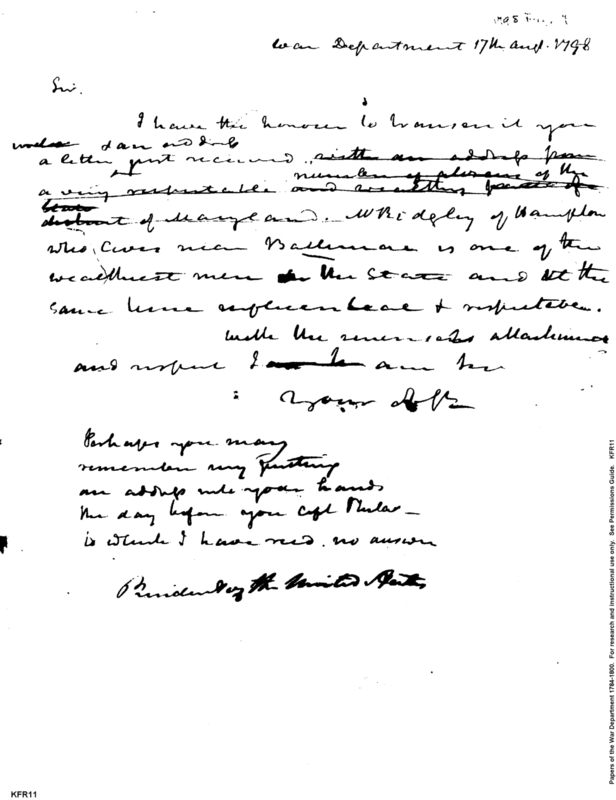 War Department 17th Augt. 1798
Sir.
I have the honour to transmit you
a letter just received with an address from
number of
a very respectable and wealthy part of
district of Maryland. Mr Ridgley of Hampton
who lives near Baltimore is one of the
wealthiest men in the State and at the
same time influential & respectable.
with the sincerest attachment
and respect I am
Your
Perhaps you may
remember my putting
an address into your hands
the day before you left Philae
to which I have recd. no answer
President of the United States
Papers of the War Department 1784-1800. For research and instructional use only. See Permissions Guide. KFR11
KFR11